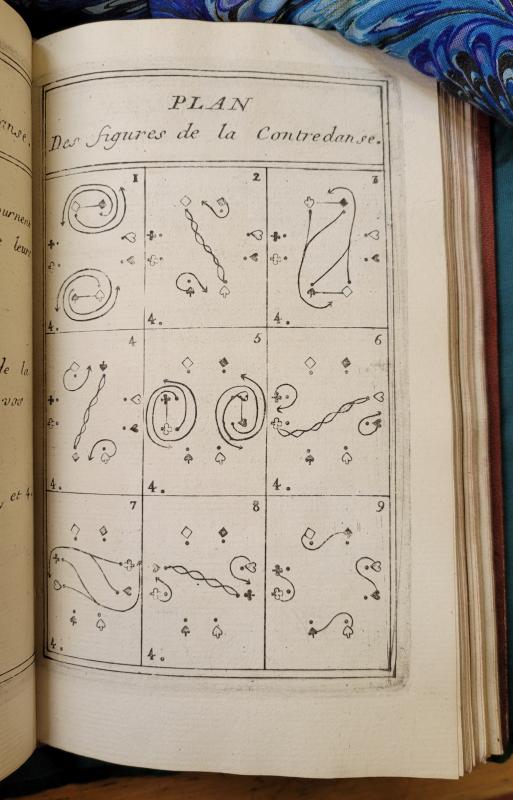 PLAN
Des figures de la Contredanse.
1
2
3
4.
4.
4.
4
5
6
4.
4.
4.
7
8
9
4.
4.
de la
vos
et 4